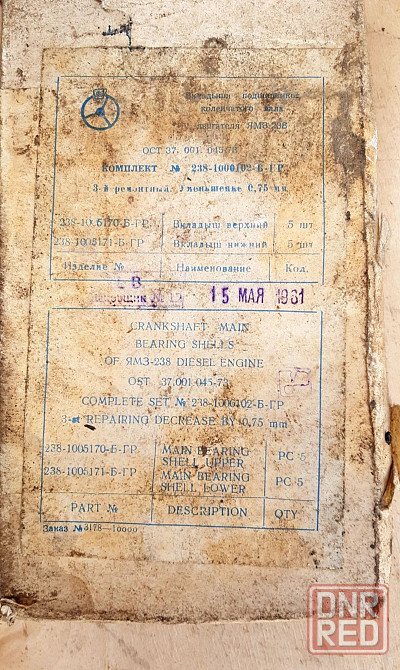 Вкладыши подшипников
коленчатого вала
двигателя ЯМЗ-238
ОСТ 37. 001. 045-73
КОМПЛЕКТ № 238-1000102-Б-ГР
3-й ремонтный. Уменьшение 0,75 мм
238-10 5170-Б-ГР Вкладыш верхний 5 шт
238 1005171-Б-ГР Вкладыш нижний 5 шт
Изделие № Наименование Кол.
В
15 МАЯ 1981
CRANKSHAFT MAIN
BEARING SHELLS
OF ЯМЗ-238 DIESEL ENGINE
OST 37.001.045-73
COMPLETE SET № 238-1000102-Б-ГР
3-st REPAIRING DECREASE BY 0,75 mm
238-1005170-Б-ГР MAIN BEARING SHELL UPPER PC 5
238-1005171-Б-ГР MAIN BEARING SHELL LOWER PC 5
PART № DESCRIPTION QTY
Заказ № 3178-10000
DNR
RED